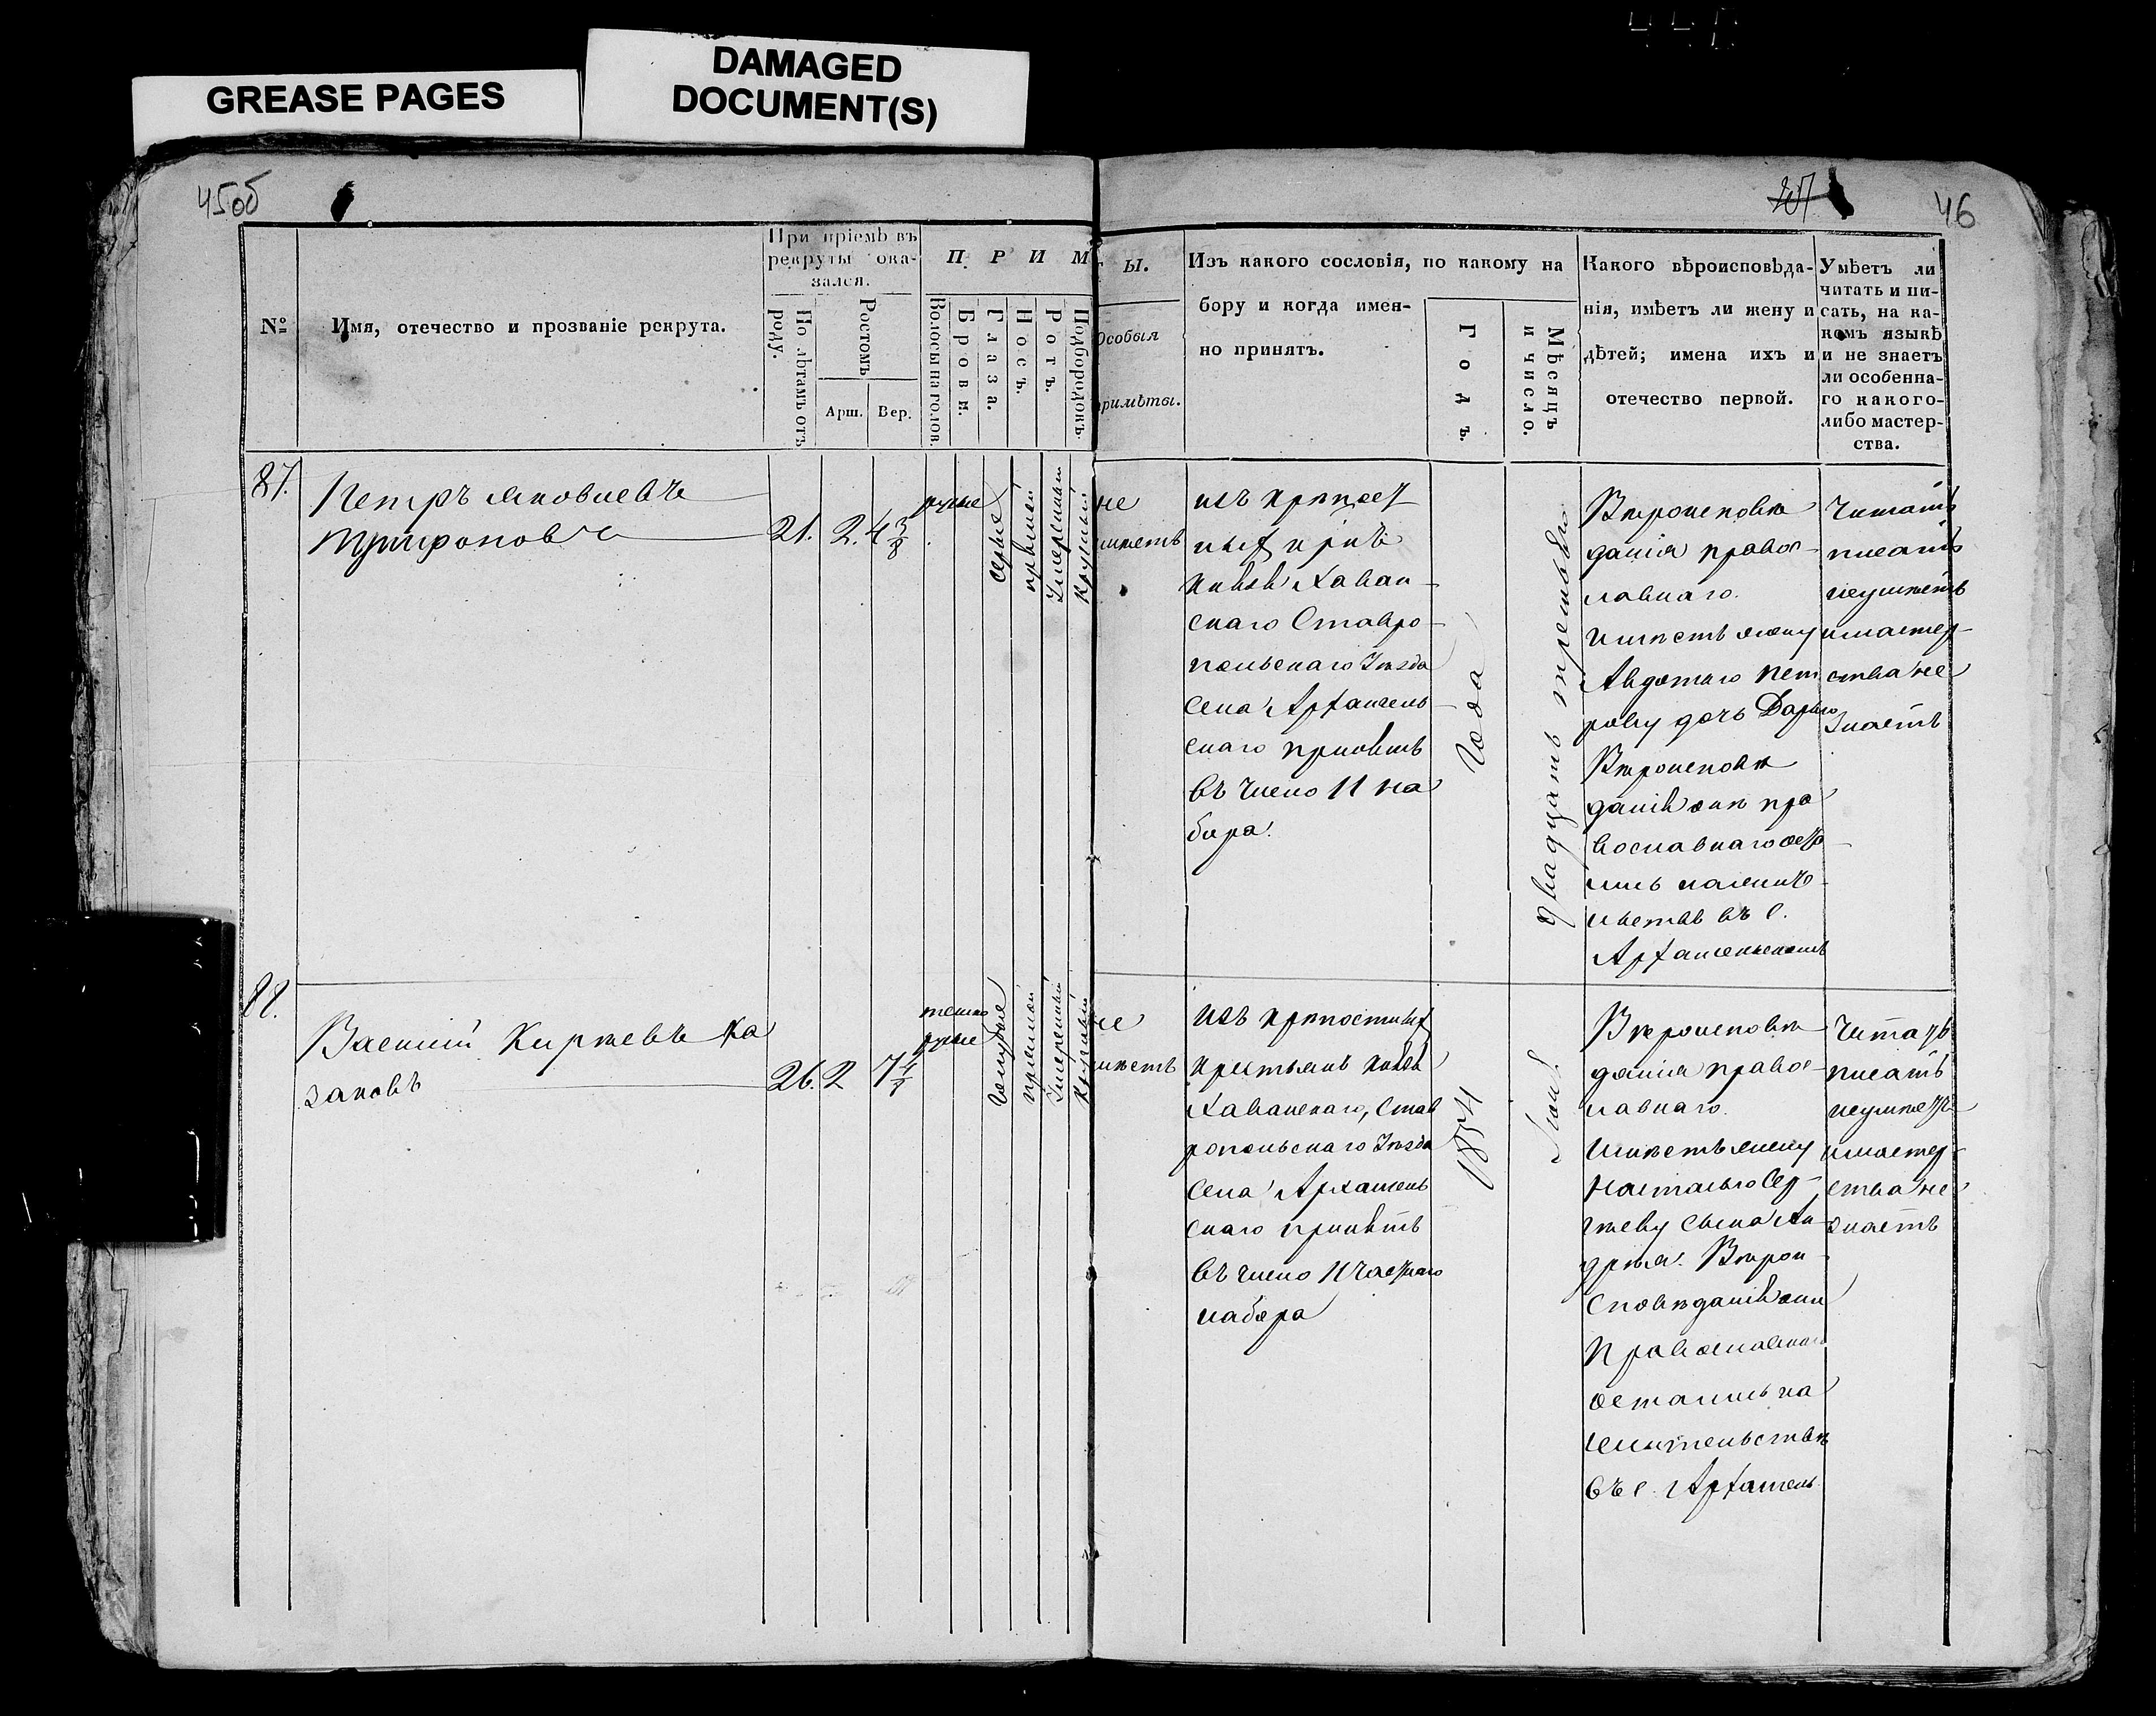 GREASE PAGES
DAMAGED
DOCUMENT(S)
45об
46
№
Имя, отечество и прозваніе рекрута.
При пріемѣ въ
рекруты ока-
зался.
По лѣтамъ отъ
роду.
Ростомъ
Арш.
Вер.
П Р И М
Волосы на голов.
Брови.
Глаза.
Носъ.
Ротъ.
Подбородокъ.
Ы.
Особыя
примѣты.
Изъ какого сословія, по какому на
бору и когда имен-
но принятъ.
Годъ.
Мѣсяцъ
и число.
Какого вѣроисповѣда-
нія, имѣетъ ли жену и
дѣтей; имена ихъ и
отечество первой.
Умѣетъ ли
читать и пи-
сать, на ка-
комъ языкѣ
и не знаетъ
ли особенна-
го какого-
либо мастер-
ства.
87.
Петръ Яковлевъ
Трифоновъ
21.
2.
4 3/8
русые
серые
прямой
Умеренный
Круглый
не
имѣетъ
изъ крѣпост
ныхъ
Князя Хован-
скаго Ставро-
польскаго Уѣзда
Села Архангель-
скаго принятъ
въ число 11 на
бора.
Вѣроисповѣ
данія правос-
лавнаго.
Имѣетъ жену
Авдотью Пет
рову дочь Дарью
Вѣроисповѣ
данія онѣ пра
вославнаго оста
лись на жите-
льствѣ въ с.
Архангельскомъ
Читать
писать
неумѣетъ
и мастер-
ства не
знаетъ
88.
Василій Киреевъ Ка
заковъ
26.
2
темно
русые
Голубые
прямой
Умеренный
Круглый
не
имѣетъ
Изъ крѣпостныхъ
Крестьянъ Князя
Хованскаго, Став
ропольскаго Уѣзда
Села Архангель
скаго принятъ
въ число 11 частнаго
набора
1854
Года
двадцать третьяго
Вѣроисповѣ
данія правос-
лавнаго.
Имѣетъ жену
Настасью Сер-
гѣеву сына Ан-
дрѣя. Вѣрои-
споведанія они
Православнаго
остались на
жительствѣ
въ с. Архангель
Читать
писать
неумѣетъ
и мастер-
ства не
знаетъ